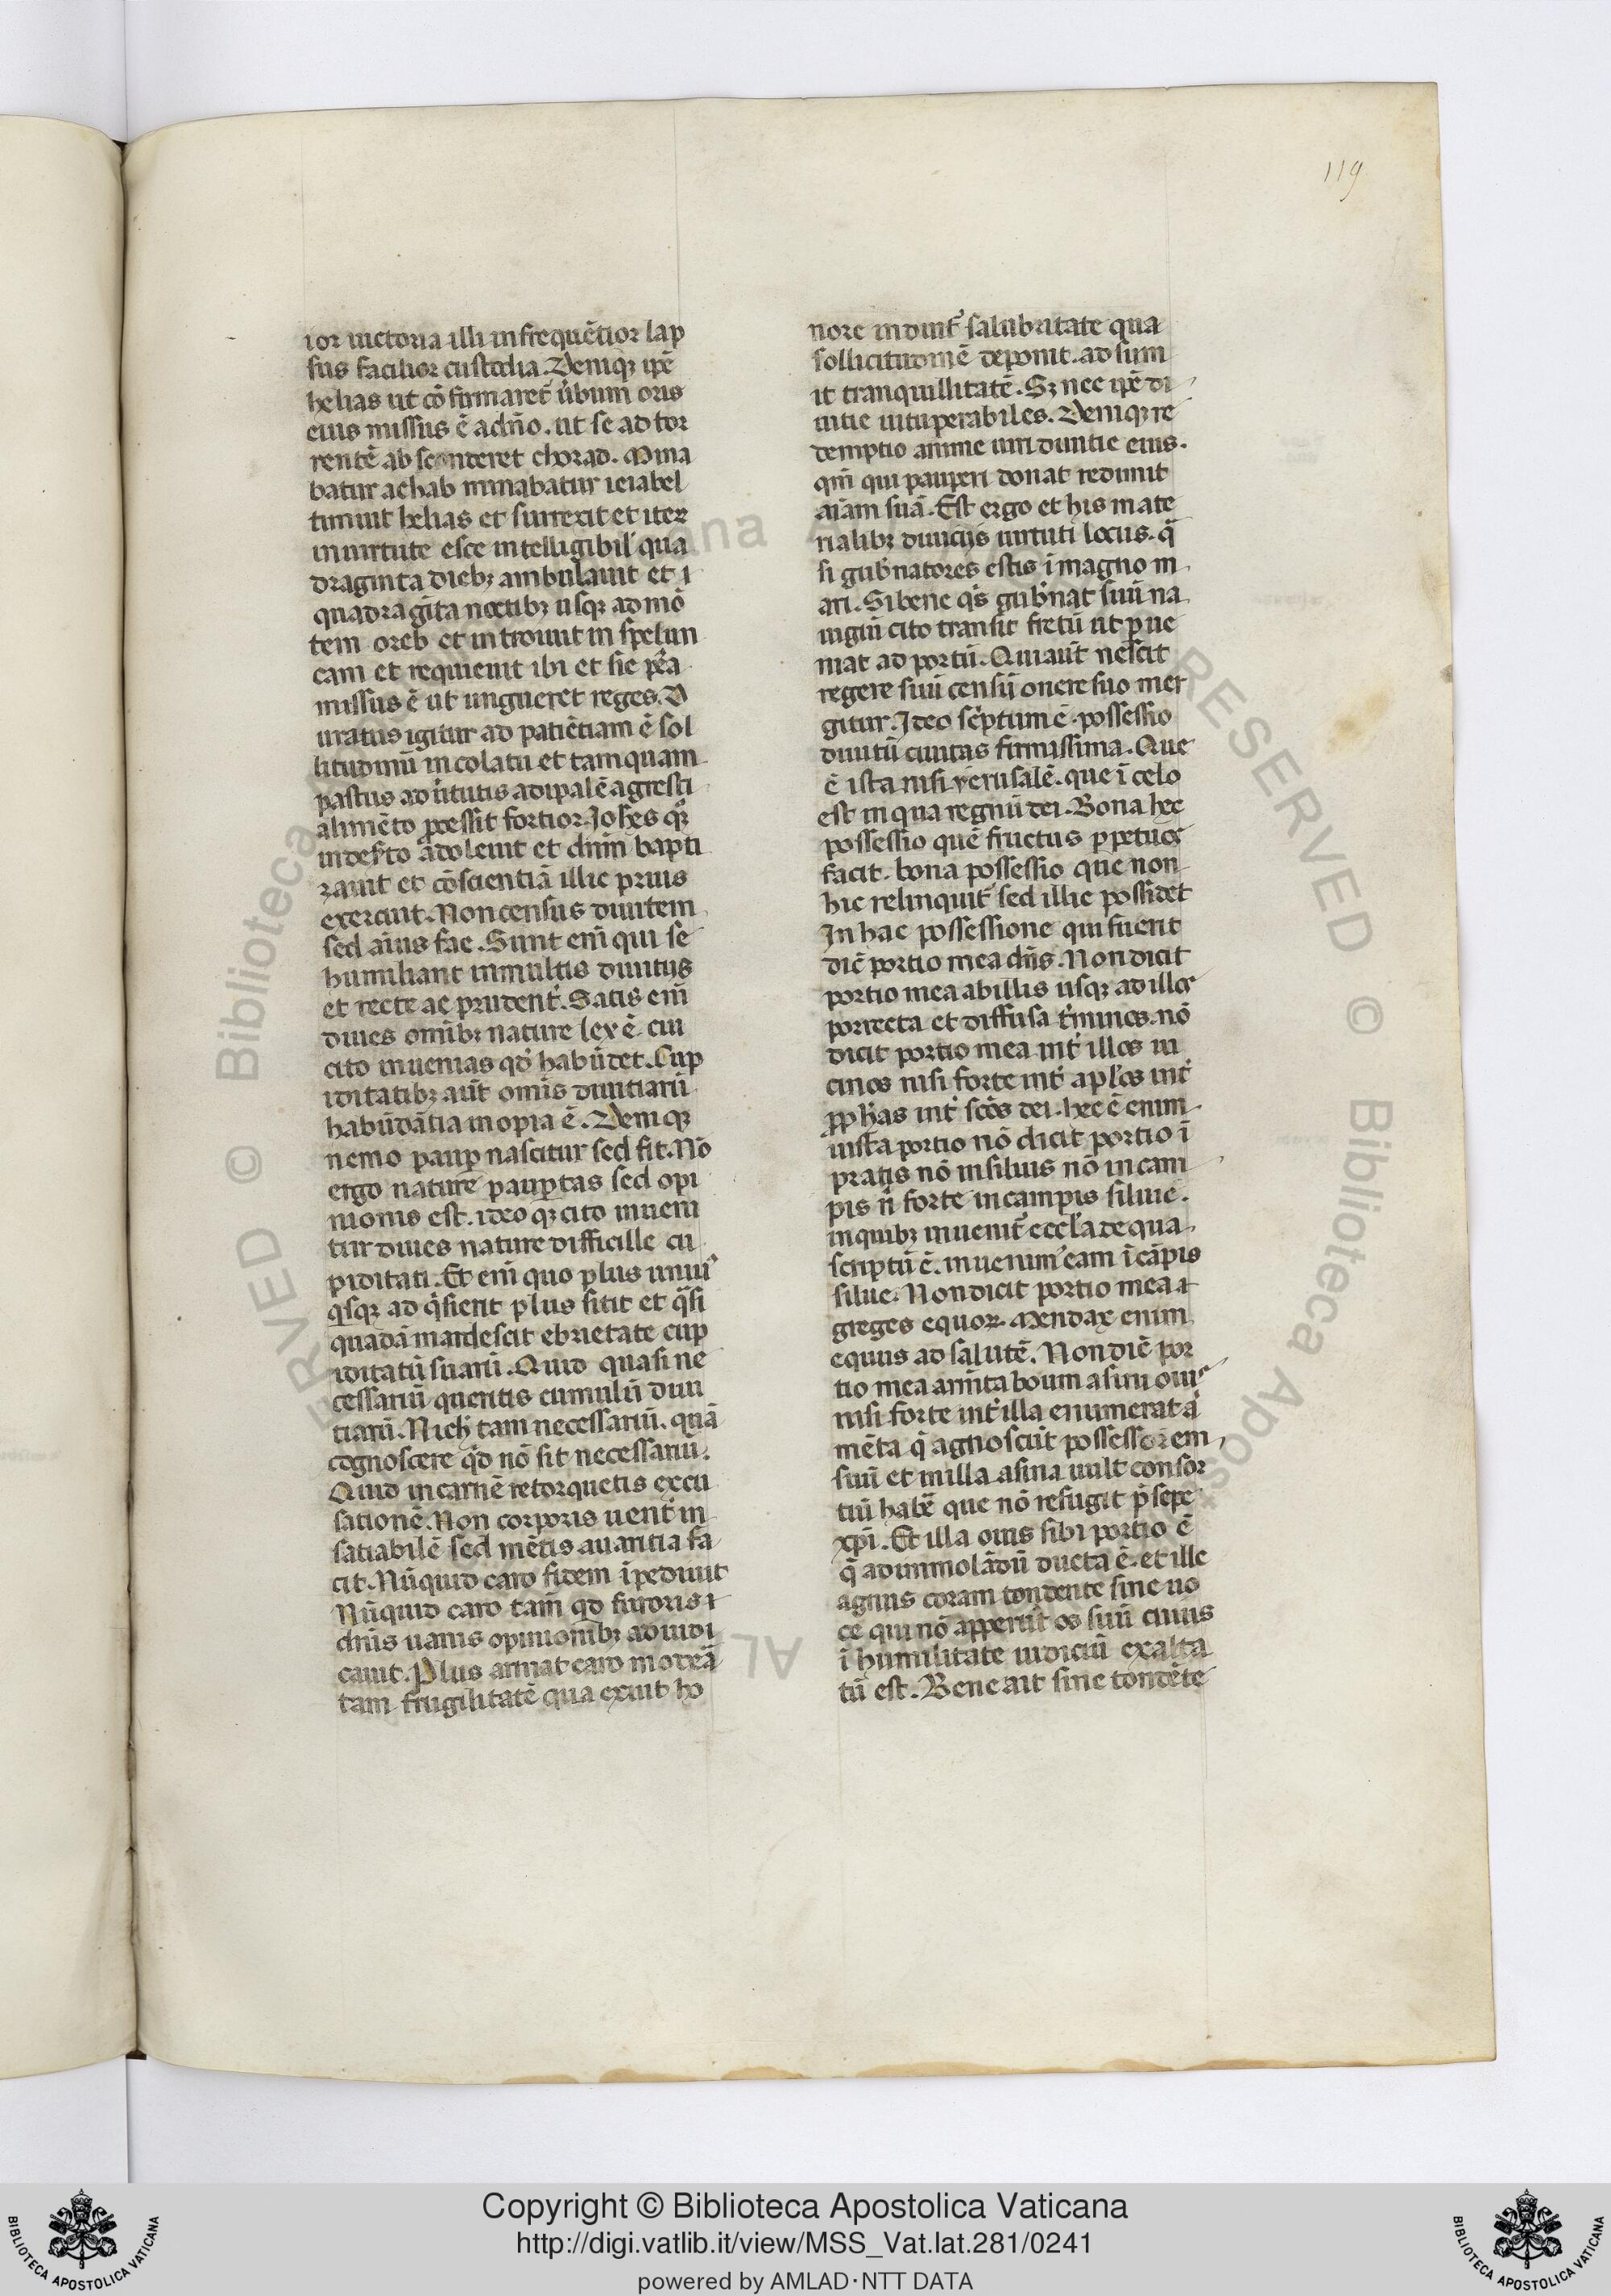 119
ior uictoria illi infrequẽtior lap
sus facilior custodia. Deniqꝫ ip̃e
helias ut cõfirmaret̃ u̓bum oris
eius missus ẽ ad dño. ut se ad tor
rentẽ absconderet chorad. Mina
batur achab minabatur iezabel
timuit helias et surrexit et iteꝝ
in uirtute esce intelligibil̓ qua
draginta diebꝫ ambulauit et ĩ
quadragĩta noctibꝫ usqꝫ ad mõ
tem oreb et introiuit in spelun
cam et requieuit ibi et sic pẽa
missus ẽ ut ungueret reges. D
uratus igitur ad patiẽtiam ẽ sol
litudinũ incolatu et tamquam
pastus ad u̓tutis adipalẽ agresti
alimẽto ꝓcessit fortior. Joh̃es qꝫ
in des̓to adoleuit et dñm bapti
zauit et cõscientiã illic prius
exercuit. Non census diuitem
sed aĩus fac. Sunt eñi qui se
humiliant in multis diuitijs
et recte ac prudent̓. Satis eñi
diues om̃ibꝫ nature lex ẽ. cui
cito inuenias qd̓ habũdet. Cup
iditatibꝫ aũt omĩs diuitiarũ
habũdãtia inopia ẽ. Deniqꝫ
nemo paup̲ nascitur sed fit. Nõ
ergo nature paup̲tas sed opi
nionis est. ideoqꝫ cito inueni
tur diues nature difficille cu
piditati. Et eñi quo plus unuꝰ
q̓sqꝫ adq̓sierit plus sitit et q̃si
quadã mandescit ebrietate cup
iditatũ suarũ. Quid quasi ne
cessariũ queritis cumulũ diui
tiarũ. Nich̓ tam necessariũ. quã
cognoscere qd̓ nõ sit necessariũ.
Quid in carnẽ retorquetis excu
sationẽ. Non corporis uent̓ in
satiabilẽ sed mẽtis auaritia fa
cit. Nũquid caro fidem ĩpediuit
Nũquid caro tam̃ qd̓ futoris ĩ
dñis uanis opinionibꝫ adiudi
cauit. Plus armat caro modeã
tam frugilitatẽ qua exuit ho
nore induit̓ salubritate qua
sollicitudinẽ deponit. adsum
it tranquillitatẽ. Sꝫ nec ip̃e di
uitie uituperabiles. Deniqꝫ re
demptio anime uiri diuitie eius.
qm̃ qui pauperi donat redimit
aĩam suã. Est ergo et his mate
rialibꝫ diuicijs uirtuti locus. q̃
si gub̓natores estis ĩ magno m
ari. Si bene q̓s gub̓nat suũ na
uigiũ cito transit fretũ ut ꝑue
niat ad portũ. Qui aũt nescit
regere suũ censũ onere suo mer
gitur. Ideo sc̓ptum ẽ. possessio
diuitũ ciuitas firmissima. Que
ẽ ista nisi yerusalẽ. que ĩ celo
est in qua regnũ dei. Bona hec
possessio quẽ fructus ꝑpetuos
facit. bona possessio que non
hic relinquit̓ sed illic possidet̓
In hac possessione qui fuerit
dic̃ portio mea dñs. Non dicit
portio mea ab illis usqꝫ ad illos
porrecta et diffusa t̓minos. nõ
dicit portio mea int̓ illos ui
cinos nisi forte int̓ apl̓os int̓
ꝓph̃as int̓ sc̃os dei. hec ẽ enim
iusta portio nõ dicit portio ĩ
pratis nõ in siluis nõ in cam
pis ñ forte in campis silue.
in quibꝫ inuenit̓ eccl̓a de qua
scriptũ ẽ. inuenim̓ eam ĩ cãpis
silue. Non dicit portio mea ĩ
greges equoꝝ. Mendax enim
equus ad salutẽ. Non dic̃ por
tio mea armẽta boum asini ouiꝰ
nisi forte int̓ illa enumerat ã
mẽta q̃ agnoscũt possessorem
suũ et in illa asina uult consor
tiũ habẽ que nõ refugit p̃sepe
xp̃i. Et illa ouis sibi portio ẽ
q̃ ad immolãdũ ducta ẽ. et ille
agnus coram tondente sine uo
ce qui nõ apperuit os suũ cuius
ĩ humilitate iudiciũ exalta
tũ est. Bene ait sine tondẽte
Copyright © Biblioteca Apostolica Vaticana
http://digi.vatlib.it/view/MSS_Vat.lat.281/0241
powered by AMLAD·NTT DATA
BIBLIOTECA APOSTOLICA VATICANA
BIBLIOTECA APOSTOLICA VATICANA